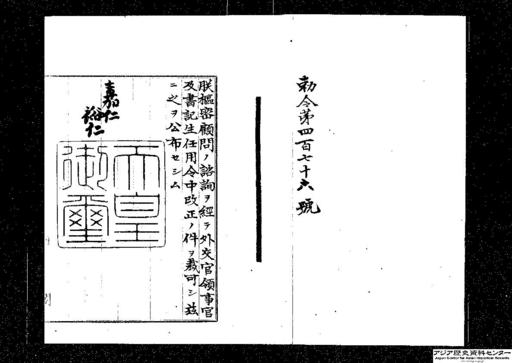 勅令第四百七十六號
朕樞密顧問ノ諮詢ヲ經テ外交官領事官
及書記生任用令中改正ノ件ヲ裁可シ茲
ニ之ヲ公布セシム
嘉仁
裕仁
天皇
御璽
アジア歴史資料センター
Japan Center for Asian Historical Records